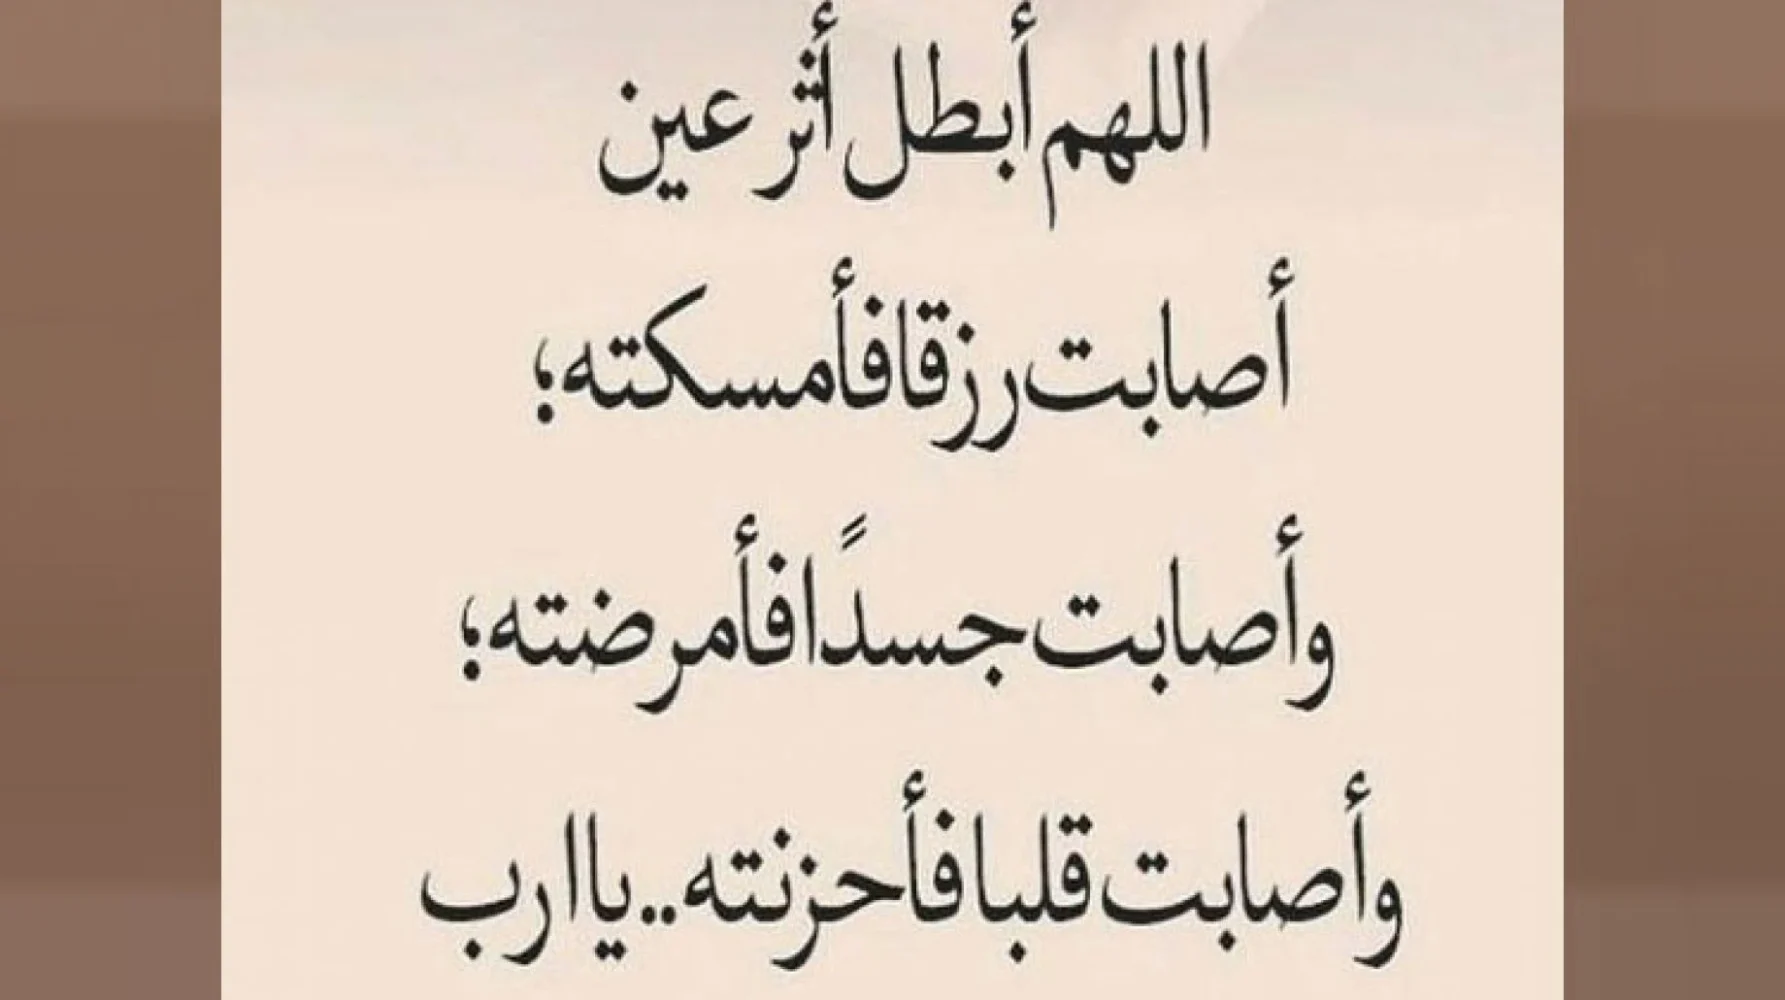 اللهم أبطل أثر عين
أصابت رزقا فأمسكته؛
وأصابت جسدًا فأمرضته؛
وأصابت قلبا فأحزنته..ياارب